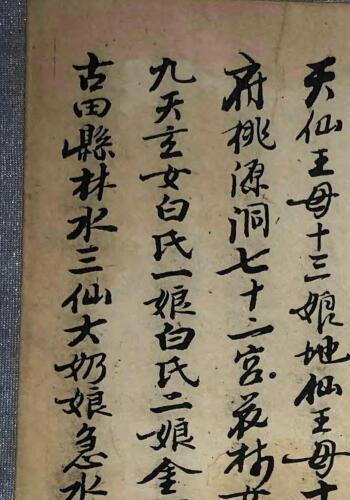 天仙王母十三娘地仙王母十
府桃源洞七十二宮花林女
九天玄女白氏一娘白氏二娘金
古田縣林水三仙大奶娘急水